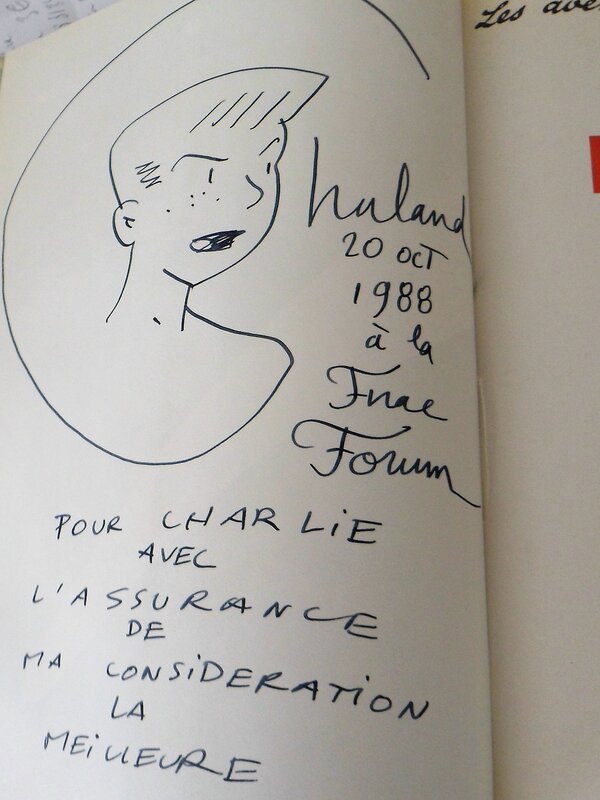 Les ave
20 oct
1988
à la
Fnac
Forum
POUR CHARLIE
AVEC
L'ASSURANCE
DE
MA CONSIDERATION
LA
MEILLEURE